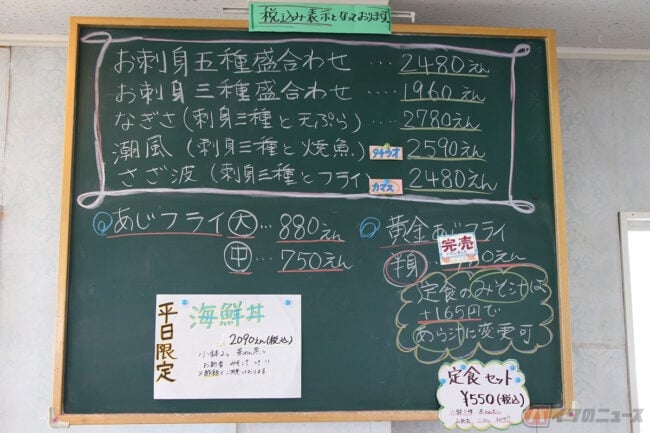 税込み表示となっております
お刺身五種盛合わせ ‥‥ 2480えん
お刺身三種盛合わせ ‥‥ 1960えん
なぎさ(刺身三種と天ぷら) ‥‥ 2780えん
潮風(刺身三種と焼魚) タチウオ 2590えん
さざ波(刺身三種とフライ) カマス 2480えん
あじフライ 大 … 880えん
中 … 750えん
黄金あじフライ
完売
半身
定食のみそ汁は
+165円で
あら汁に変更可
平日限定
海鮮丼
2090えん(税込)
定食セット
¥550(税込)
バイクのニュース